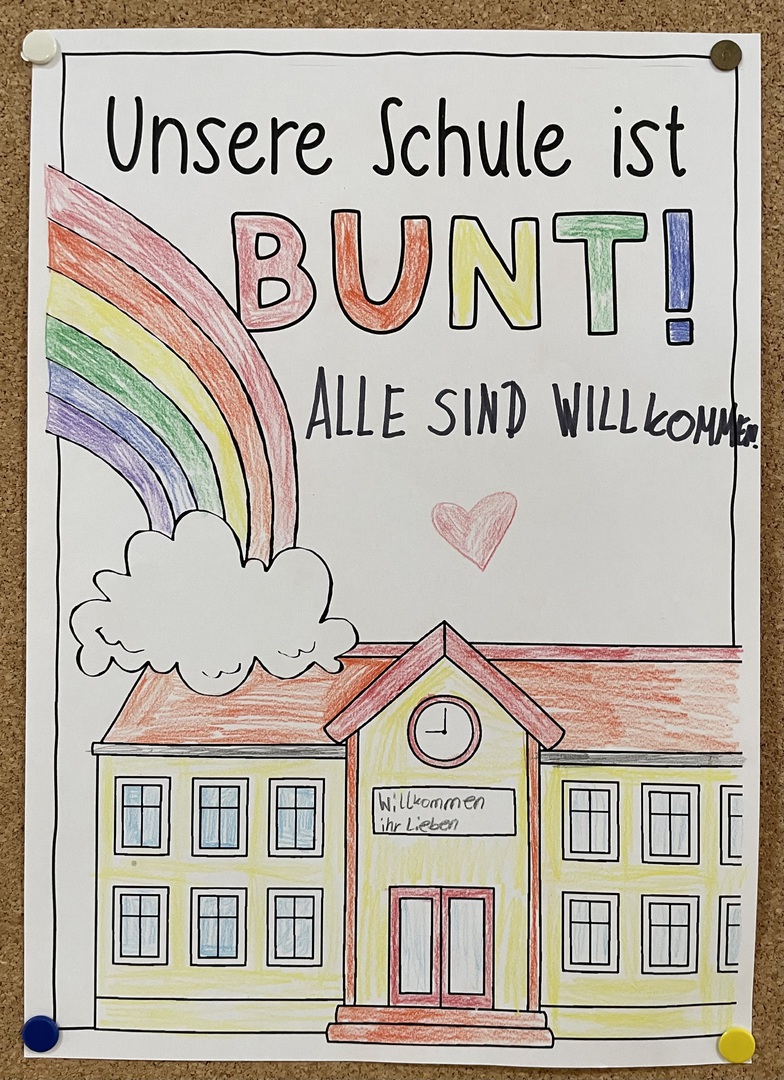 Unsere Schule ist
BUNT!
ALLE SIND WILLKOMMEN!
Willkommen
ihr Lieben